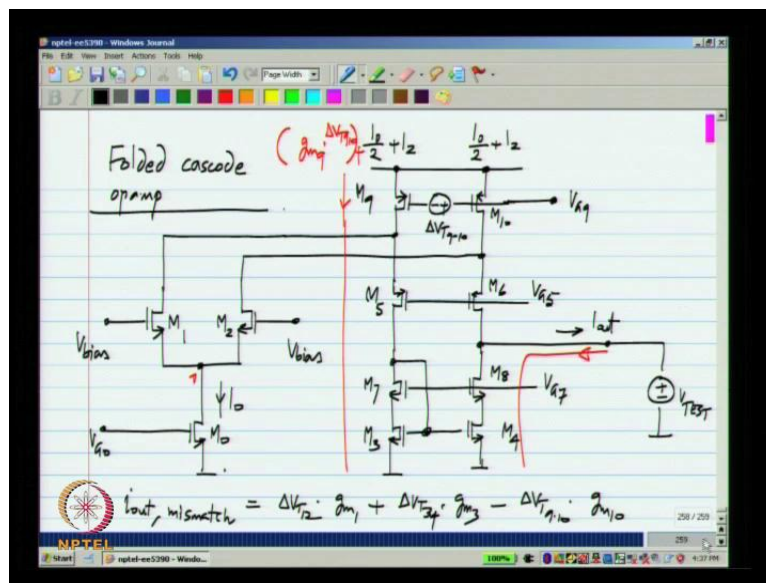 nptel-ee5390 - Windows Journal
File Edit View Insert Actions Tools Help
Page Width
Folded cascode
opamp
(g_m9 · ΔV_T9,10) + I_0/2 + I_2
I_0/2 + I_2
M_9
M_10
V_G9
ΔV_T9-10
M_5
M_6
V_G5
M_1
M_2
V_bias
V_bias
I_out
M_7
M_8
V_G7
V_TEST
I_0
V_G0
M_0
M_3
M_4
i_out, mismatch = ΔV_T12 · g_m1 + ΔV_T34 · g_m3 - ΔV_T9-10 · g_m10
258 / 259
259
NPTEL
Start
nptel-ee5390 - Windo...
100%
4:37 PM